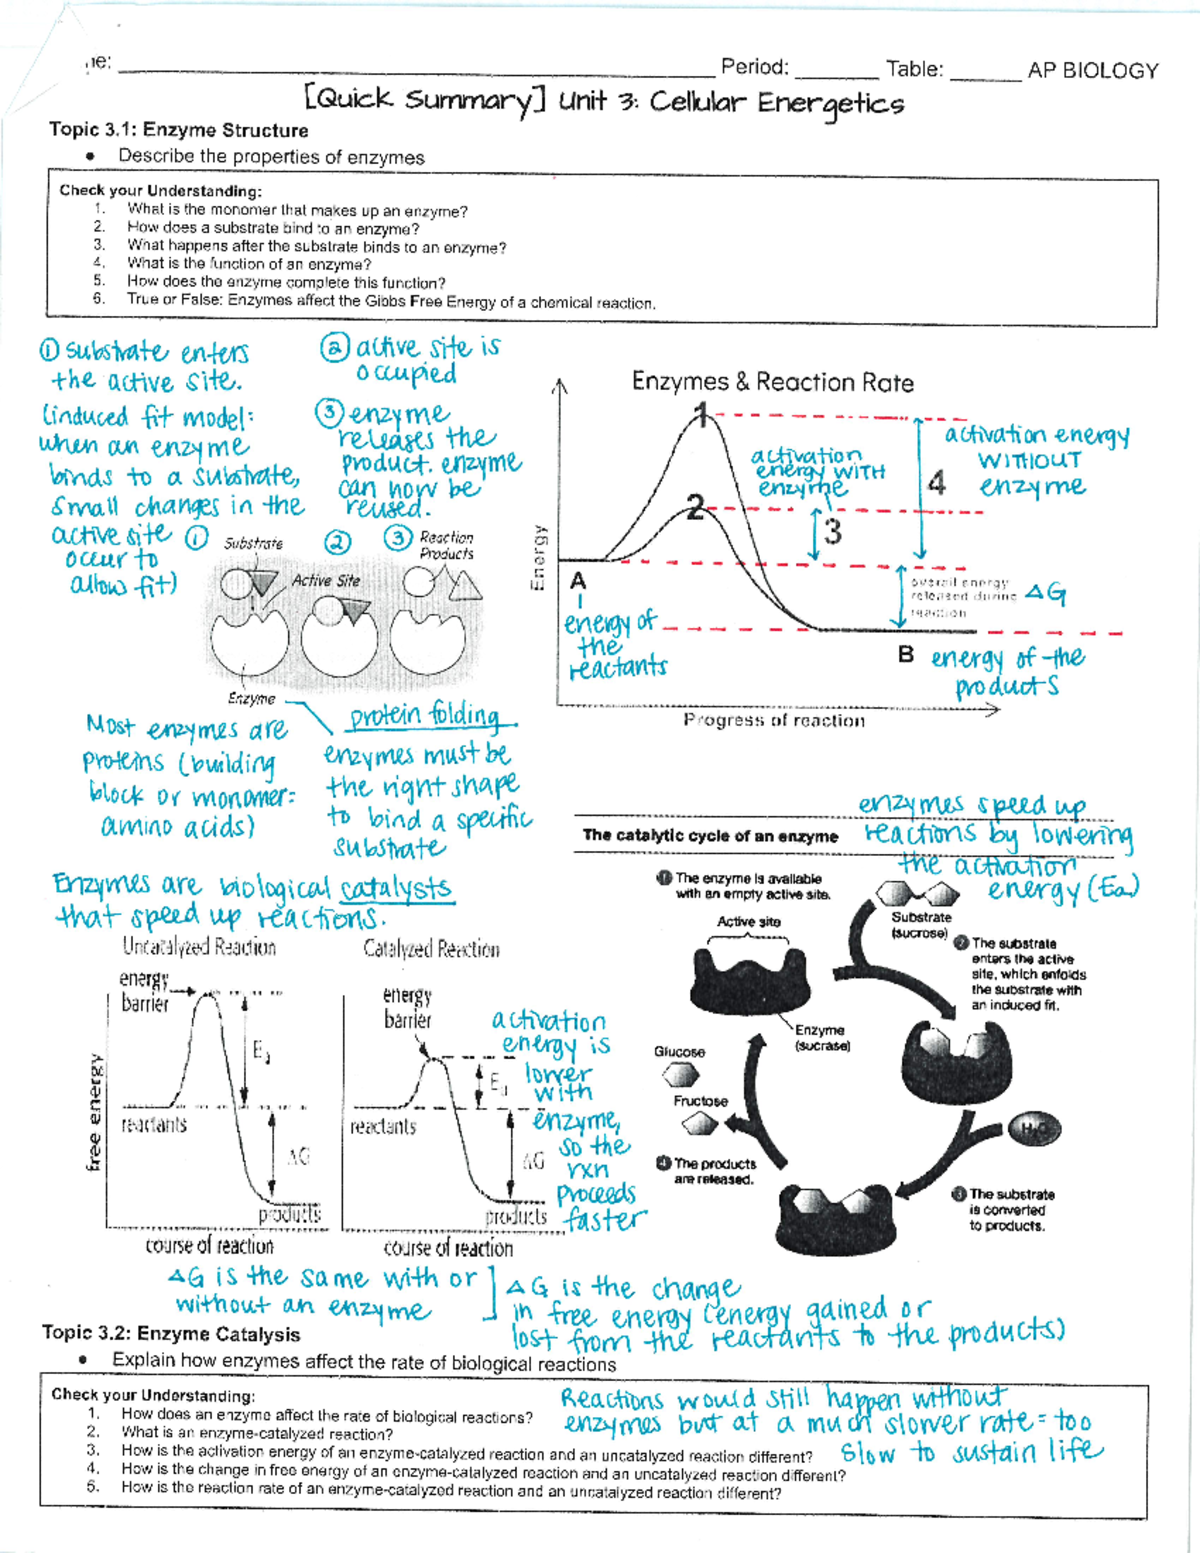 ne: Period: Table: AP BIOLOGY
[Quick Summary] Unit 3: Cellular Energetics
Topic 3.1: Enzyme Structure
• Describe the properties of enzymes
Check your Understanding:
1. What is the monomer that makes up an enzyme?
2. How does a substrate bind to an enzyme?
3. What happens after the substrate binds to an enzyme?
4. What is the function of an enzyme?
5. How does the enzyme complete this function?
6. True or False: Enzymes affect the Gibbs Free Energy of a chemical reaction.
① substrate enters
the active site.
(induced fit model:
when an enzyme
binds to a substrate,
small changes in the
active site
occur to
allow fit)
② active site is
occupied
③ enzyme
releases the
product. enzyme
can now be
reused.
① Substrate ② ③ Reaction
Products
Active Site
Enzyme
Most enzymes are
proteins (building
block or monomer:
amino acids)
protein folding
enzymes must be
the right shape
to bind a specific
substrate
Enzymes & Reaction Rate
Energy
1
2
3
4
activation
energy WITH
enzyme
activation energy
WITHOUT
enzyme
A
energy of
the
reactants
overall energy
released during
reaction
ΔG
B energy of the
products
Progress of reaction
enzymes speed up
reactions by lowering
the activation
energy (Ea)
The catalytic cycle of an enzyme
1 The enzyme is available
with an empty active site.
Active site
Substrate
(sucrose)
2 The substrate
enters the active
site, which enfolds
the substrate with
an induced fit.
Enzyme
(sucrase)
Glucose
Fructose
H₂O
4 The products
are released.
3 The substrate
is converted
to products.
Enzymes are biological catalysts
that speed up reactions.
Uncatalyzed Reaction
energy
barrier
Ea
reactants
ΔG
products
free energy
course of reaction
Catalyzed Reaction
energy
barrier
Ea
reactants
ΔG
products
course of reaction
activation
energy is
lower
with
enzyme,
so the
rxn
proceeds
faster
ΔG is the same with or
without an enzyme
ΔG is the change
in free energy (energy gained or
lost from the reactants to the products)
Topic 3.2: Enzyme Catalysis
• Explain how enzymes affect the rate of biological reactions
Check your Understanding:
1. How does an enzyme affect the rate of biological reactions?
2. What is an enzyme-catalyzed reaction?
3. How is the activation energy of an enzyme-catalyzed reaction and an uncatalyzed reaction different?
4. How is the change in free energy of an enzyme-catalyzed reaction and an uncatalyzed reaction different?
5. How is the reaction rate of an enzyme-catalyzed reaction and an uncatalyzed reaction different?
Reactions would still happen without
enzymes but at a much slower rate = too
slow to sustain life